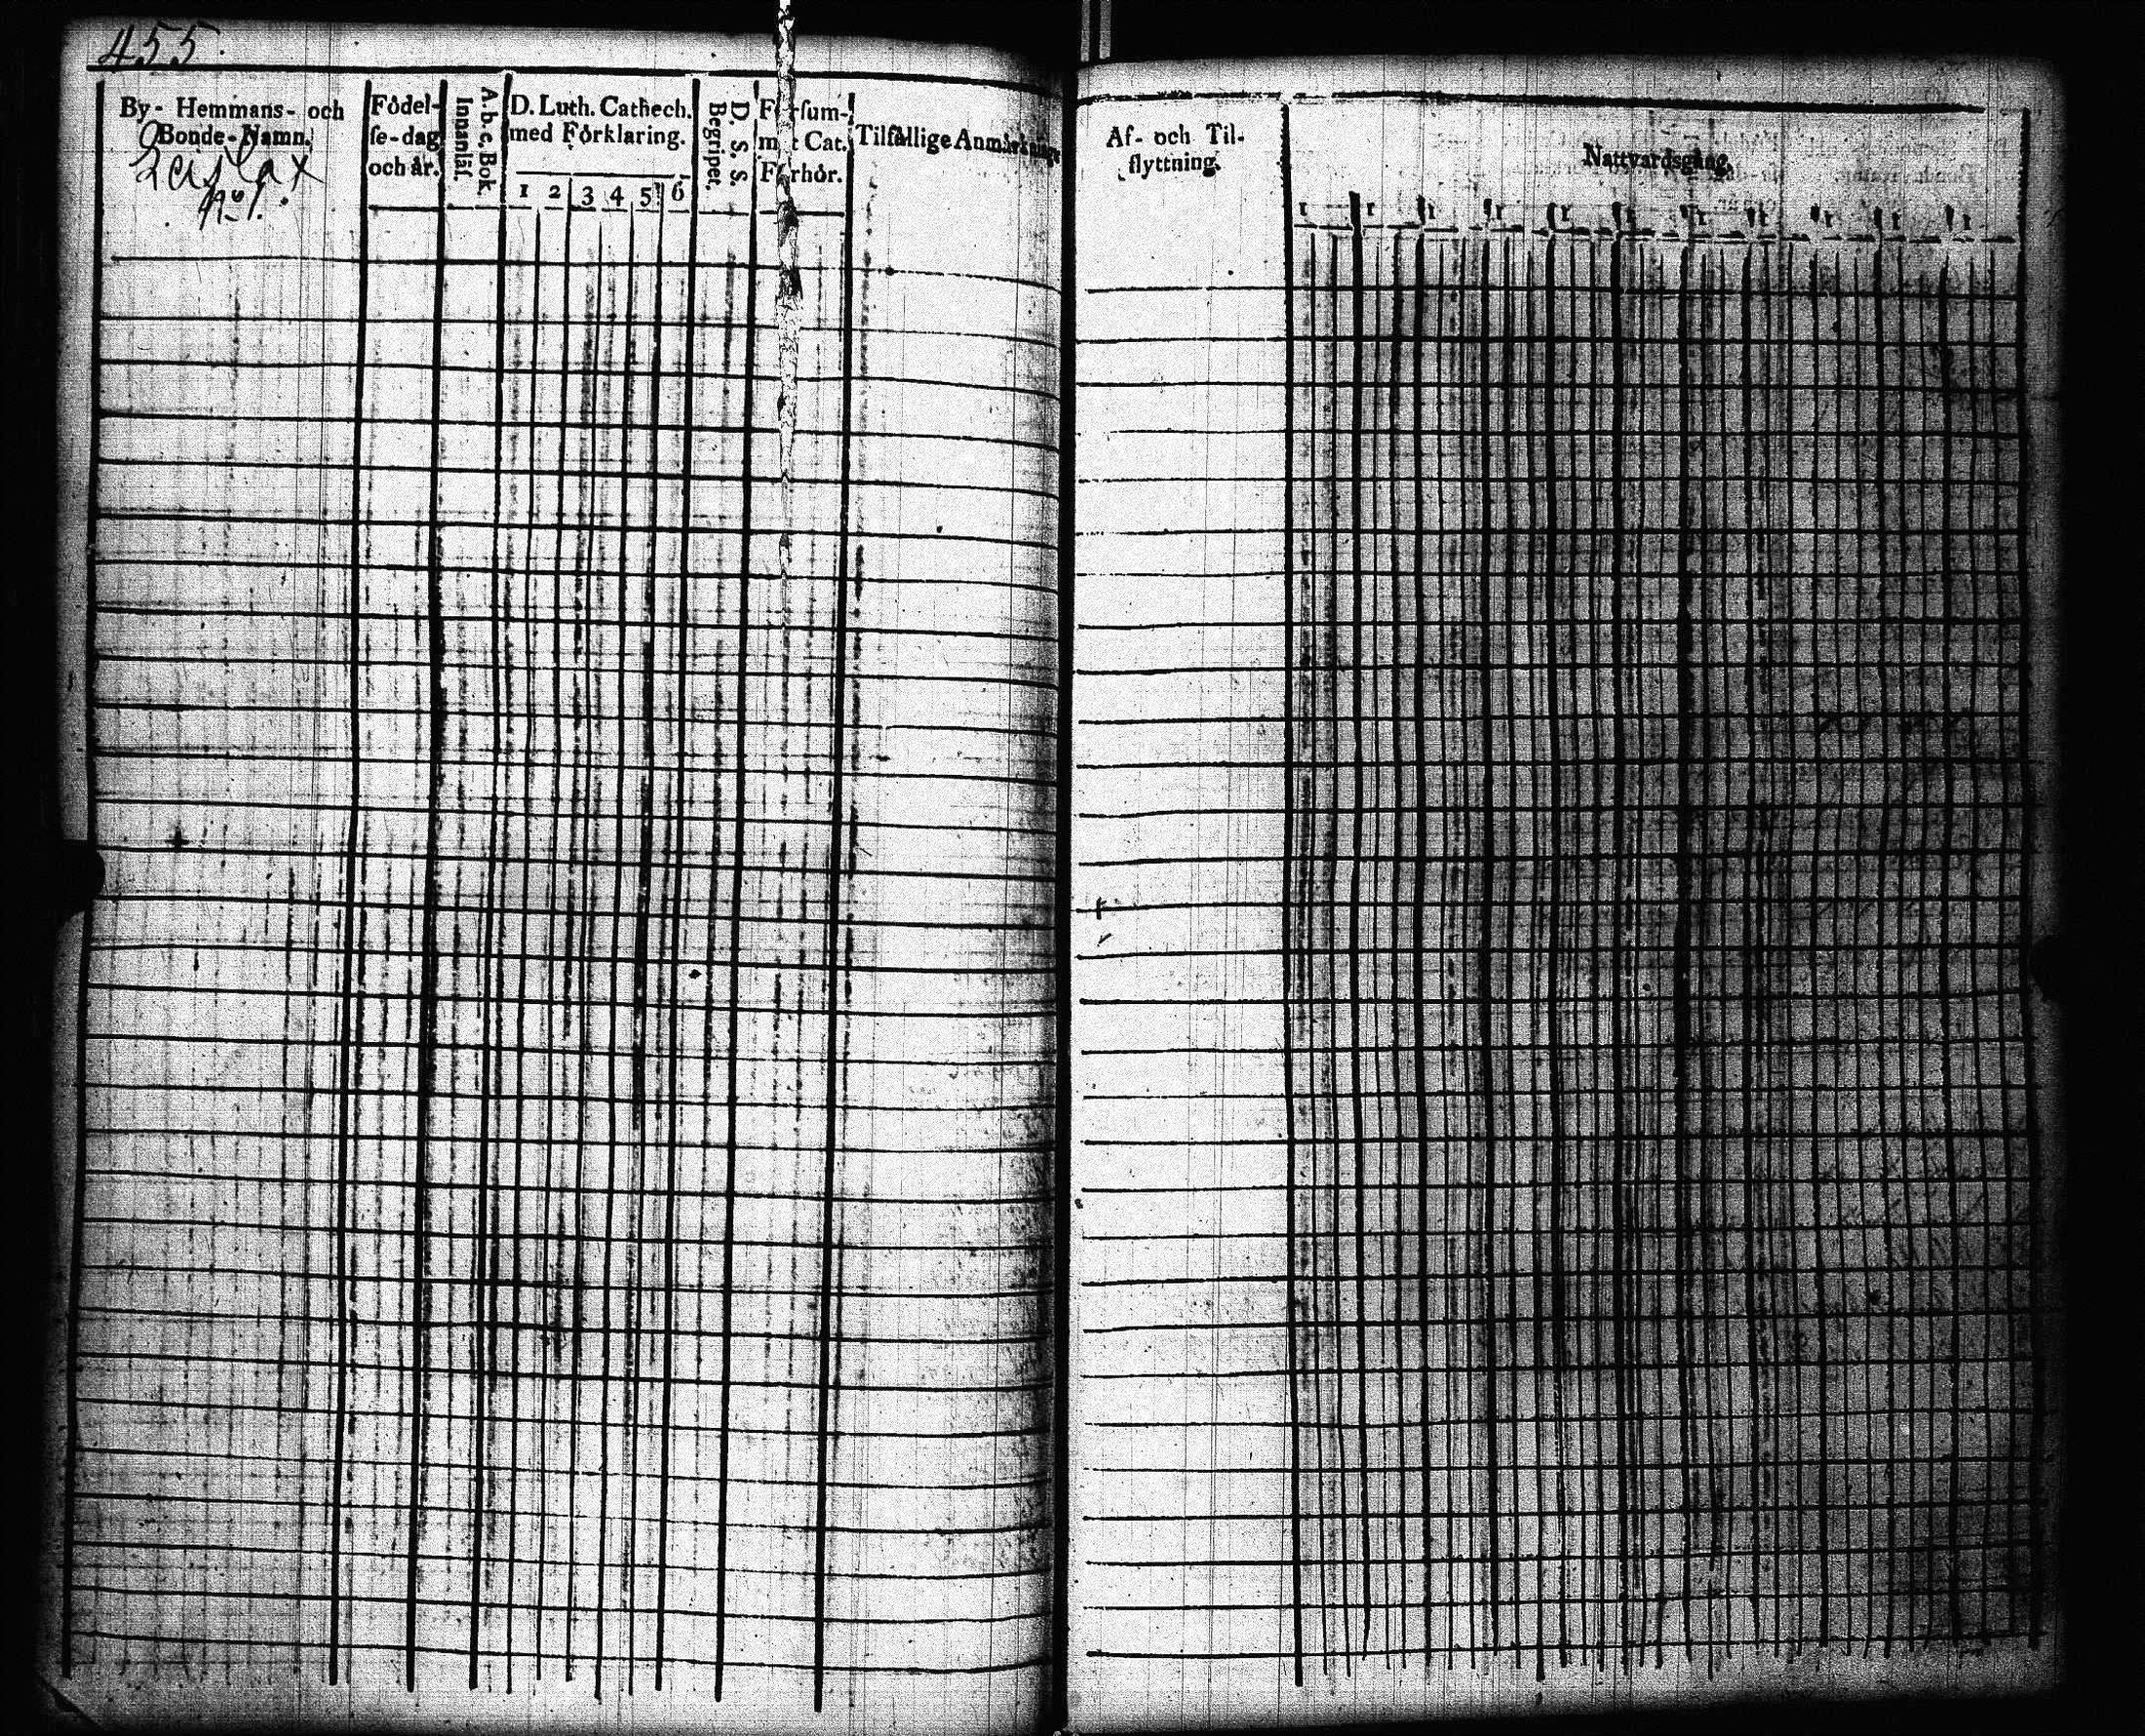 455.
By- Hemmans- och
Bonde-Namn.
N:o 1.
Födel-
se-dag
och år.
A.b.c. Bok.
Innanläs.
D. Luth. Cathech.
med Förklaring.
1 2 3 4 5 6
D. S. S.
Begripet.
Försum-
mat Cat.
Förhör.
Tilfällige Anmärkningar
Af- och Til-
flyttning.
Nattvardsgång.
1 1 1 1 1 1 1 1 1 1 1